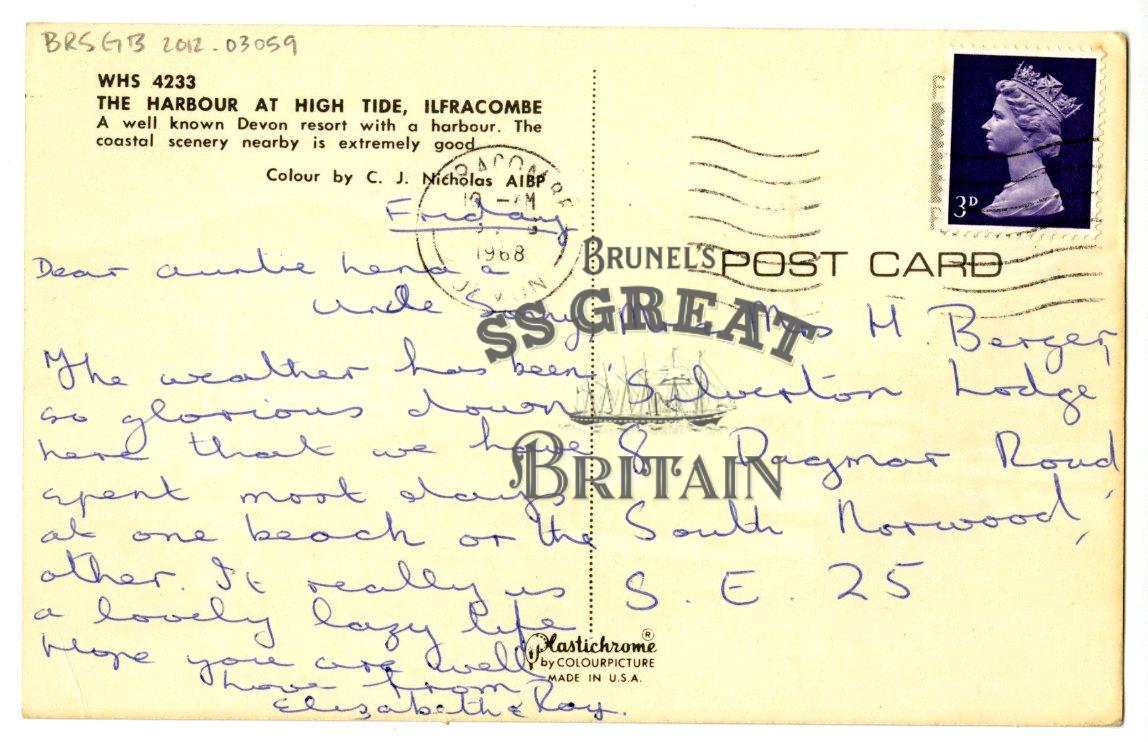 BRSGB 2012.03059
WHS 4233
THE HARBOUR AT HIGH TIDE, ILFRACOMBE
A well known Devon resort with a harbour. The
coastal scenery nearby is extremely good
Colour by C. J. Nicholas AIBP
1968
DEVON
3D
POST CARD
BRUNEL'S
SS GREAT
BRITAIN
Friday
Dear Auntie Lena &
Uncle Sonny,
The weather has been
so glorious down
here that we have
spent most days
at one beach or the
other. It really is
a lovely lazy life
Hope you are well
Love from
Elizabeth & Roy.
Mr & Mrs H. Berger,
Silverton Lodge
8 Dagmar Road
South Norwood,
S. E. 25
Plastichrome ®
by COLOURPICTURE
MADE IN U.S.A.